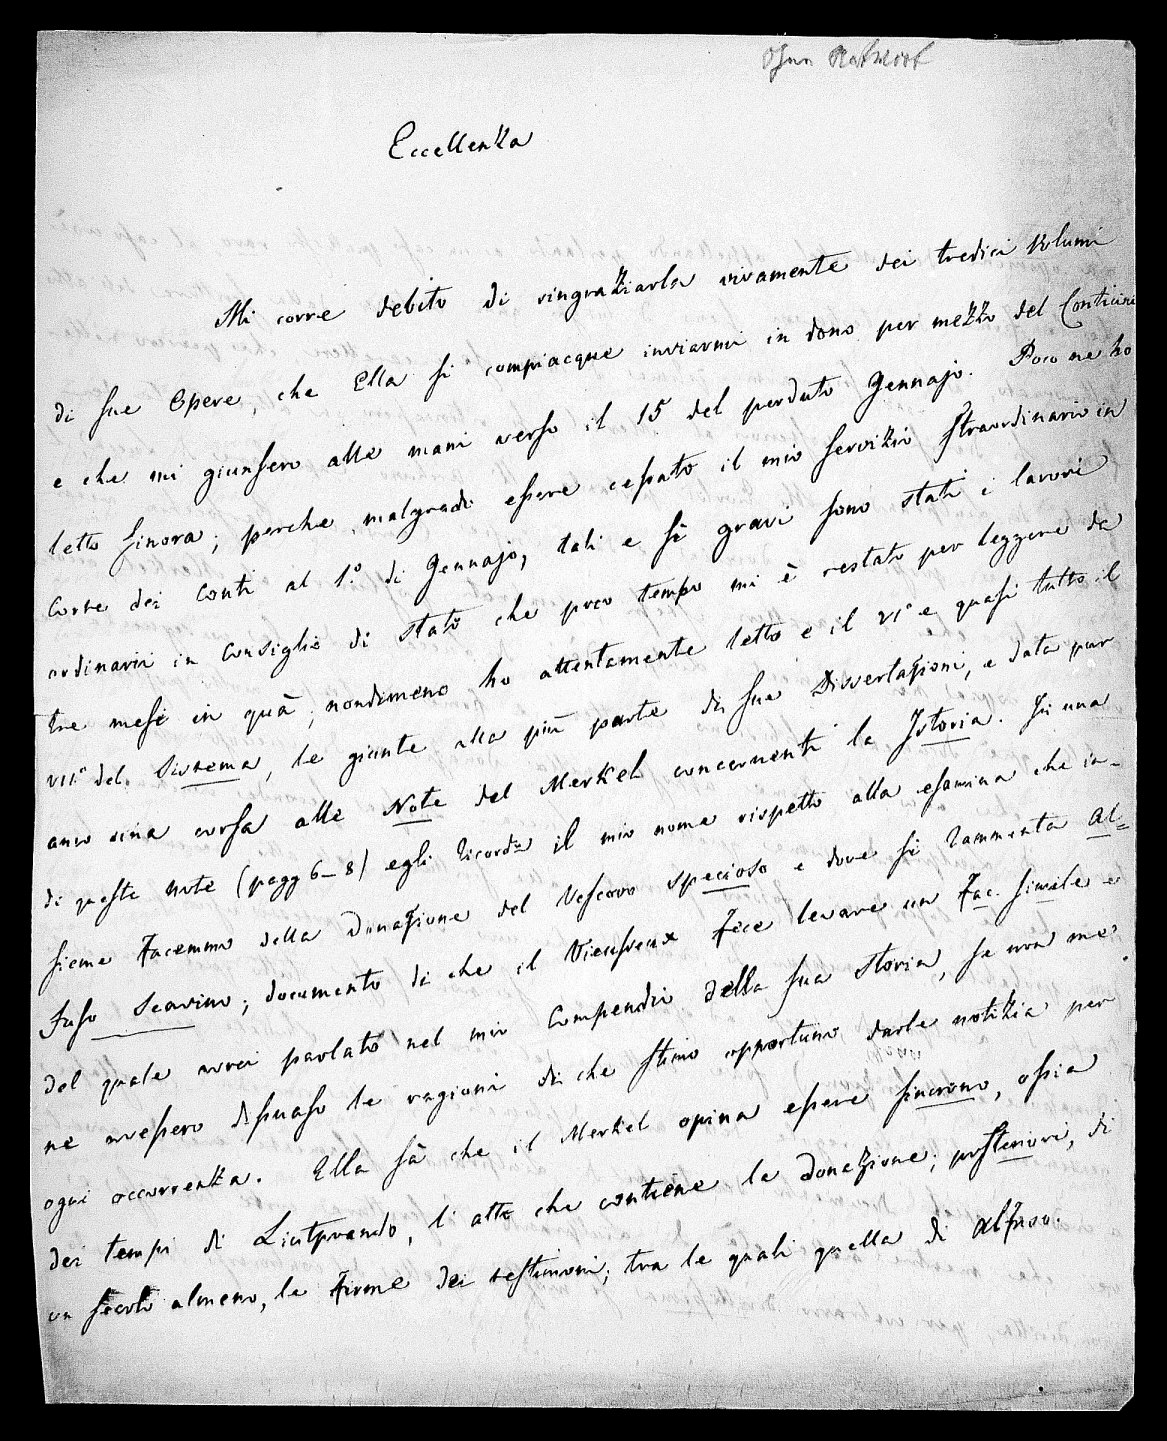 Eccellenza
Mi corre debito di ringraziarla vivamente dei tredici Volumi
di sue Opere, che Ella si compiacque inviarmi in dono per mezzo del Conticini
e che mi giunsero alle mani verso il 15 del perduto Gennajo. Poco ne ho
letto finora; perche malgrado essere cessato il mio servizio straordinario in
Corte dei Conti al 1.º di Gennajo, tali e sì gravi sono stati i lavori
ordinarii in Consiglio di Stato che poco tempo mi è restato per leggere da
tre mesi in quà; nondimeno ho attentamente letto e il VIº e quasi tutto il
VIIº del Sistema, le giunte alla più parte di sue Dissertazioni, e data pur
anco una corsa alle Note del Merkel concernenti la Istoria. In una
di queste note (pagg 6–8) egli ricorda il mio nome rispetto alla esamina che in-
sieme facemmo della Donazione del Vescovo Specioso e dove si rammenta Al=
fuso Scavino; documento di che il Vieusseux fece levare un Fac. simile e
del quale avrei parlato nel mio Compendio della sua Storia, se non me
ne avessero dissuaso le ragioni di che stimo opportuno darle notizia per
ogni occorrenza. Ella sà che il Merkel opina essere sincrono, ossia
dei tempi di Liutprando, l'atto che contiene la Donazione; posteriori, di
un secolo almeno, le firme dei testimoni; tra le quali quella di Alfuso.